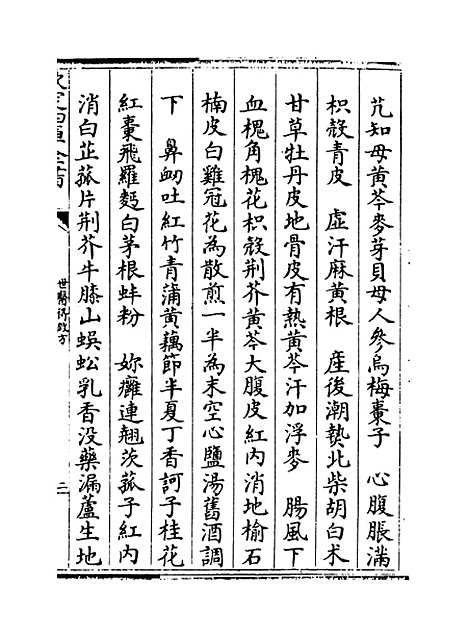 芃知母黃芩麥芽貝母人參烏梅棗子　心腹脹滿
枳殻青皮　虚汗麻黃根　産後潮熱北柴胡白术
甘草牡丹皮地骨皮有熱黃芩汗加浮麥　腸風下
血槐角槐花枳殻荆芥黃芩大腹皮紅内消地榆石
楠皮白雞冠花為散煎一半為末空心鹽湯舊酒調
下　鼻衂吐紅竹青蒲黃藕節半夏丁香訶子桂花
紅棗飛羅麪白茅根蚌粉　妳癰連翹茨菰子紅内
消白芷菰片荆芥牛膝山蜈蚣乳香没藥漏蘆生地
世醫得效方
三